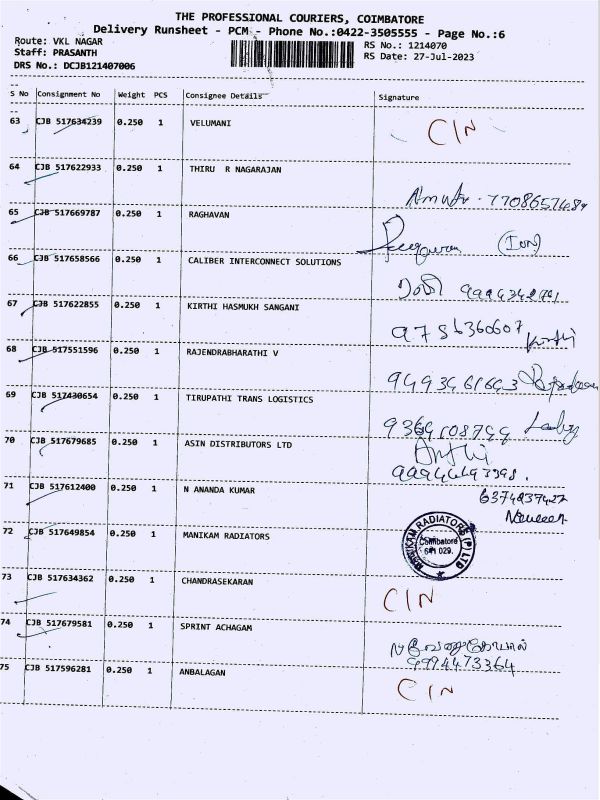 THE PROFESSIONAL COURIERS, COIMBATORE
Delivery Runsheet - PCM - Phone No.:0422-3505555 - Page No.:6
Route: VKL NAGAR
RS No.: 1214070
Staff: PRASANTH
RS Date: 27-Jul-2023
DRS No.: DCJB121407006
S No Consignment No Weight PCS Consignee Details Signature
63 CJB 517634239 0.250 1 VELUMANI CIN
64 CJB 517622933 0.250 1 THIRU R NAGARAJAN
65 CJB 517669787 0.250 1 RAGHAVAN
66 CJB 517658566 0.250 1 CALIBER INTERCONNECT SOLUTIONS
67 CJB 517622855 0.250 1 KIRTHI HASMUKH SANGANI
9786360607
68 CJB 517551596 0.250 1 RAJENDRABHARATHI V
69 CJB 517430654 0.250 1 TIRUPATHI TRANS LOGISTICS
70 CJB 517679685 0.250 1 ASIN DISTRIBUTORS LTD
71 CJB 517612400 0.250 1 N ANANDA KUMAR
Naveen
72 CJB 517649854 0.250 1 MANIKAM RADIATORS
MANIKAM RADIATORS (P) LTD
Coimbatore
641 029.
73 CJB 517634362 0.250 1 CHANDRASEKARAN CIN
74 CJB 517679581 0.250 1 SPRINT ACHAGAM
9994473364
75 CJB 517596281 0.250 1 ANBALAGAN CIN